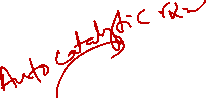 Autocatalytic rxn